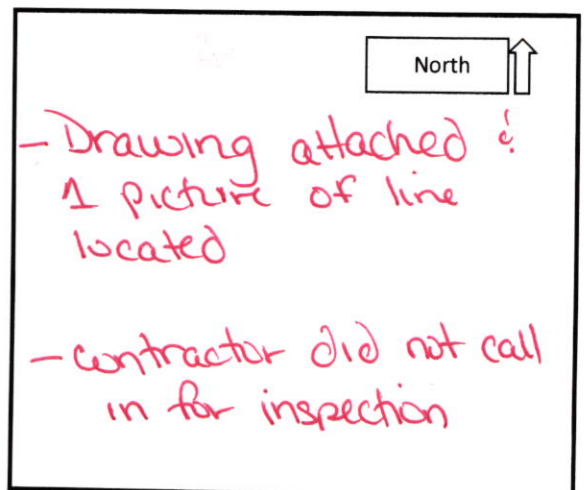 North
- Drawing attached &
1 picture of line
located
- contractor did not call
in for inspection